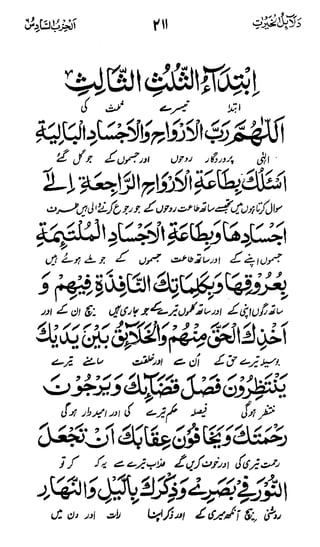 دلائل الخیرات ۲۱۱ الحزب السادس
اِبْتِدَاءُ الثُّلُثِ الثَّالِثِ
ابتدا تیسرے ثلث کی
اَللّٰهُمَّ رَبَّ الْاَرْوَاحِ وَالْاَجْسَادِ الْبَالِيَةِ
الٰہی پروردگار روحوں اور جسموں کے جو گل گئے
اَسْئَلُكَ بِطَاعَةِ الْاَرْوَاحِ الرَّاجِعَةِ اِلٰى
سوال کرتا ہوں میں تجھسے ساتھ طاعت روحوں کے جو رجوع کرنے والی ہیں طرف
اَجْسَادِهَا وَبِطَاعَةِ الْاَجْسَادِ الْمُلْتَئِمَةِ
جسموں اپنے کے اور ساتھ طاعت جسموں کے جو ملے ہوئے ہیں
بِعُرُوْقِهَا وَبِكَلِمَاتِكَ النَّافِذَةِ فِيْهِمْ وَ
ساتھ رگوں اپنی کے اور ساتھ کلموں تیرے کے جو جاری ہیں بیچ ان کے اور
اَخْذِكَ الْحَقَّ مِنْهُمْ وَالْخَلَائِقُ بَيْنَ يَدَيْكَ
بوسیلہ تیرے حق کے اُن سے اور خلقت سامنے تیرے
يَنْتَظِرُوْنَ فَصْلَ قَضَائِكَ وَيَرْجُوْنَ
منتظر ہوگی فیصلہ حکم تیرے کی اور امیدوار ہوگی
رَحْمَتَكَ وَيَخَافُوْنَ عِقَابَكَ اَنْ تَجْعَلَ
رحمت تیری کی اور خوف کریں گے عذاب تیرے سے یہ کہ کر تو
النُّوْرَ فِيْ بَصَرِيْ وَذِكْرَكَ بِاللَّيْلِ وَالنَّهَارِ
روشنی بیچ آنکھ میری کے اور ذکر اپنا رات اور دن میں